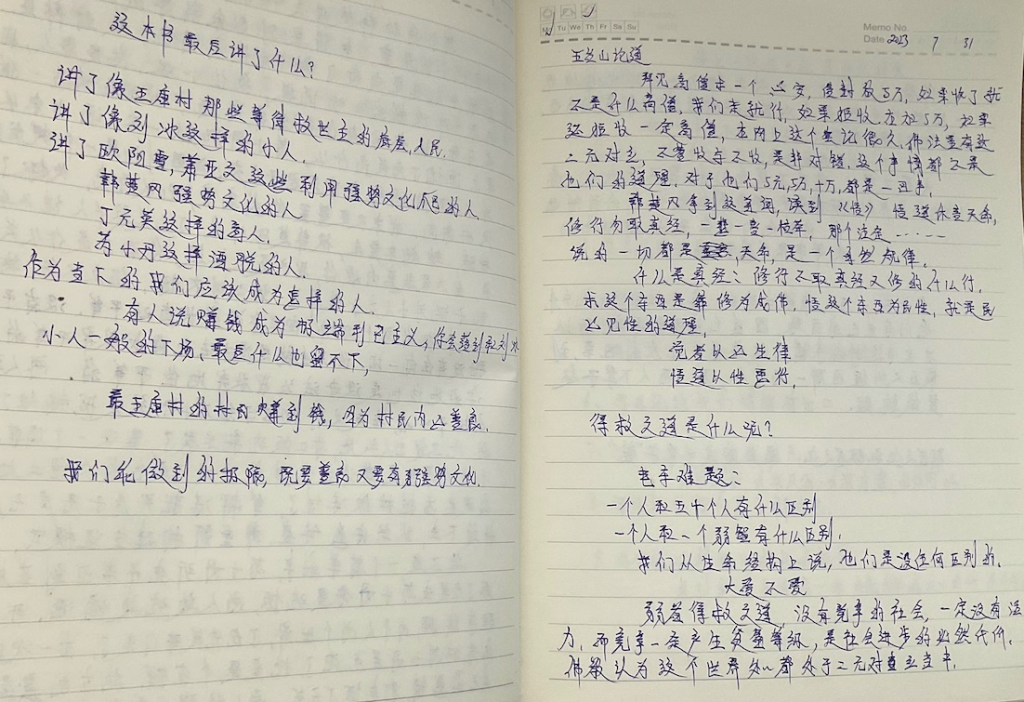 这本书最后讲了什么?
讲了像王庙村那些等待救世主的底层人民.
讲了像刘冰这样的小人.
讲了欧阳雪,肖亚文这些利用强势文化的人
韩楚风强势文化的人
丁元英这样的高人.
芮小丹这样洒脱的人.
作为当下的我们应该成为怎样的人.
有人说赚钱成为极端利己主义,你会落到和刘冰
小人一般的下场、最后什么也留不下,
最王庙村的村民赚到钱,因为村民内心善良.
我们能做到的极限,既要善良又要有强势文化.
Memo No.
Mo Tu We Th Fr Sa Su
Date 2023 7 31
五台山论道
拜见高僧求一个心安,使封敬5万,如果收了就
不是什么高僧,我们走就行,如果拒收在加5万,如果
还拒收一定高僧,在网上这个要论很久.佛法里有这
二元对立,不管收与不收,是非对错,这个事情都不是
他们的道理.对于他们5元,5万,十万,都是一回事.
韩楚风拿到这首词,读到《悟》 悟道休言天命,
修行勿取真经,一悲一喜一枯荣,那个注定……
说的一切都是天命,是一个自然规律.
什么是真经:修行不取真经又修的什么行.
求这个东西是靠修为成佛,悟这个东西为民性,就是民
心见性的道理.
觉者以心生律
悟道以性施行.
得救之道是什么呢?
电车难题:
一个人和五个人有什么区别
一个人和一个弱智有什么区别.
我们从生命结构上说,他们是没任何区别的.
大爱不爱
弱者得救之道,没有竞争的社会,一定没有活
力,而竞争一定产生贫富等级,是社会进步的必然代价.
佛教认为这个世界都处于二元对立当中.